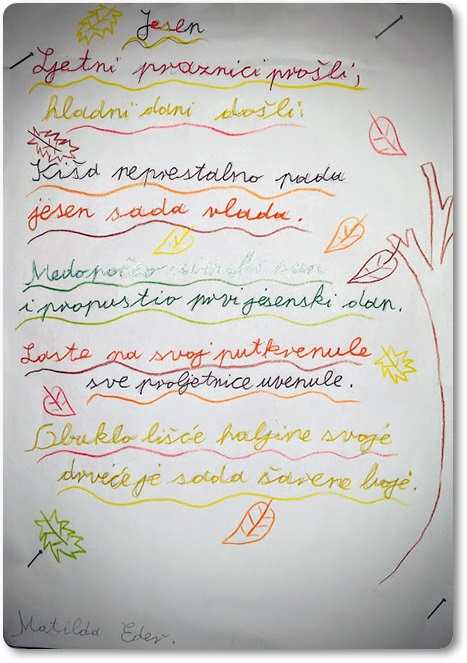 Jesen
Ljetni praznici prošli,
hladni dani došli.
Kiša neprestalno pada
jesen sada vlada.
Medo počeo zimski san
i propustio prvi jesenski dan.
Laste na svoj put krenule
sve proljetnice uvenule.
Obuklo lišće haljine svoje
drveće je sada šarene boje.
Matilda Eder.